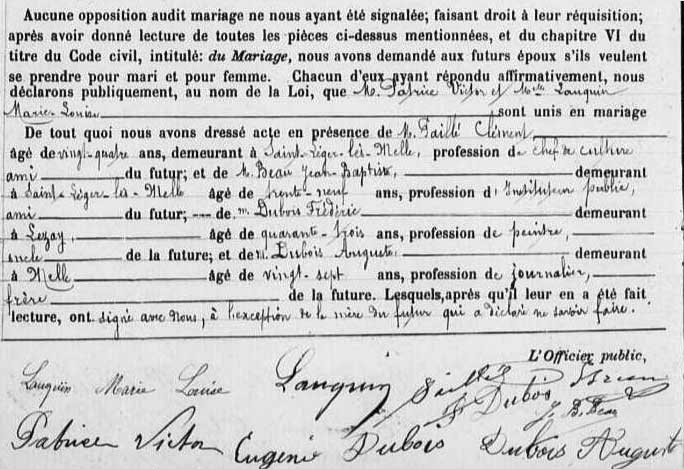 Aucune opposition audit mariage ne nous ayant été signalée; faisant droit à leur réquisition;
après avoir donné lecture de toutes les pièces ci-dessus mentionnées, et du chapitre VI du
titre du Code civil, intitulé: du Mariage, nous avons demandé aux futurs époux s'ils veulent
se prendre pour mari et pour femme. Chacun d'eux ayant répondu affirmativement, nous
déclarons publiquement, au nom de la Loi, que M. Patrice Victor et Melle Lauquin
Marie-Louise sont unis en mariage
De tout quoi nous avons dressé acte en présence de M. Faillé Clément
âgé de vingt-quatre ans, demeurant à Saint-Léger-lès-Melle, profession de chef de culture
ami du futur; et de M. Beau Jean-Baptiste, demeurant
à Saint-Léger-lès-Melle âgé de trente-neuf ans, profession d'Instituteur public,
ami du futur; de M. Dubois Frédéric demeurant
à Lezay, âgé de quarante-trois ans, profession de peintre,
oncle de la future; et de M. Dubois Auguste, demeurant
à Melle âgé de vingt-sept ans, profession de journalier,
frère de la future. Lesquels, après qu'il leur en a été fait
lecture, ont signé avec nous, à l'exception de la mère du futur qui a déclaré ne savoir faire.
L'Officier public,
Lauquin Marie Louise Lauquin Faillé Dubois
J. B. Beau
Patrice Victor Eugénie Dubois Dubois August